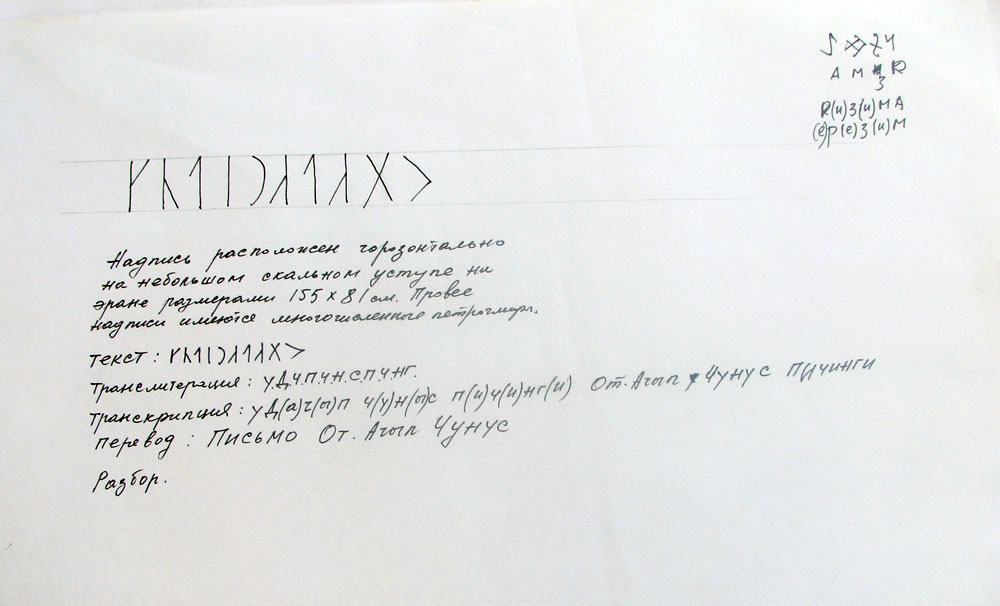 А М З R
R(и)З(и)МА
(е)Р(е)З(и)М
Надпись расположен горозонтально
на небольшом скальном уступе на
эране размерами 155 х 81 см. Провее
надписи имеются многочисленные петроглифы.
текст :
транслитерация : У.Д.Ч.П.Ч.Н.С.П.Ч.НГ.
транскрипция : УД(а)Ч(ы)П Ч(у)Н(ы)С П(и)Ч(и)НГ(и) От. Ачып Чунус Пичинги
перевод : Письмо От. Ачып Чунус
Разбор.